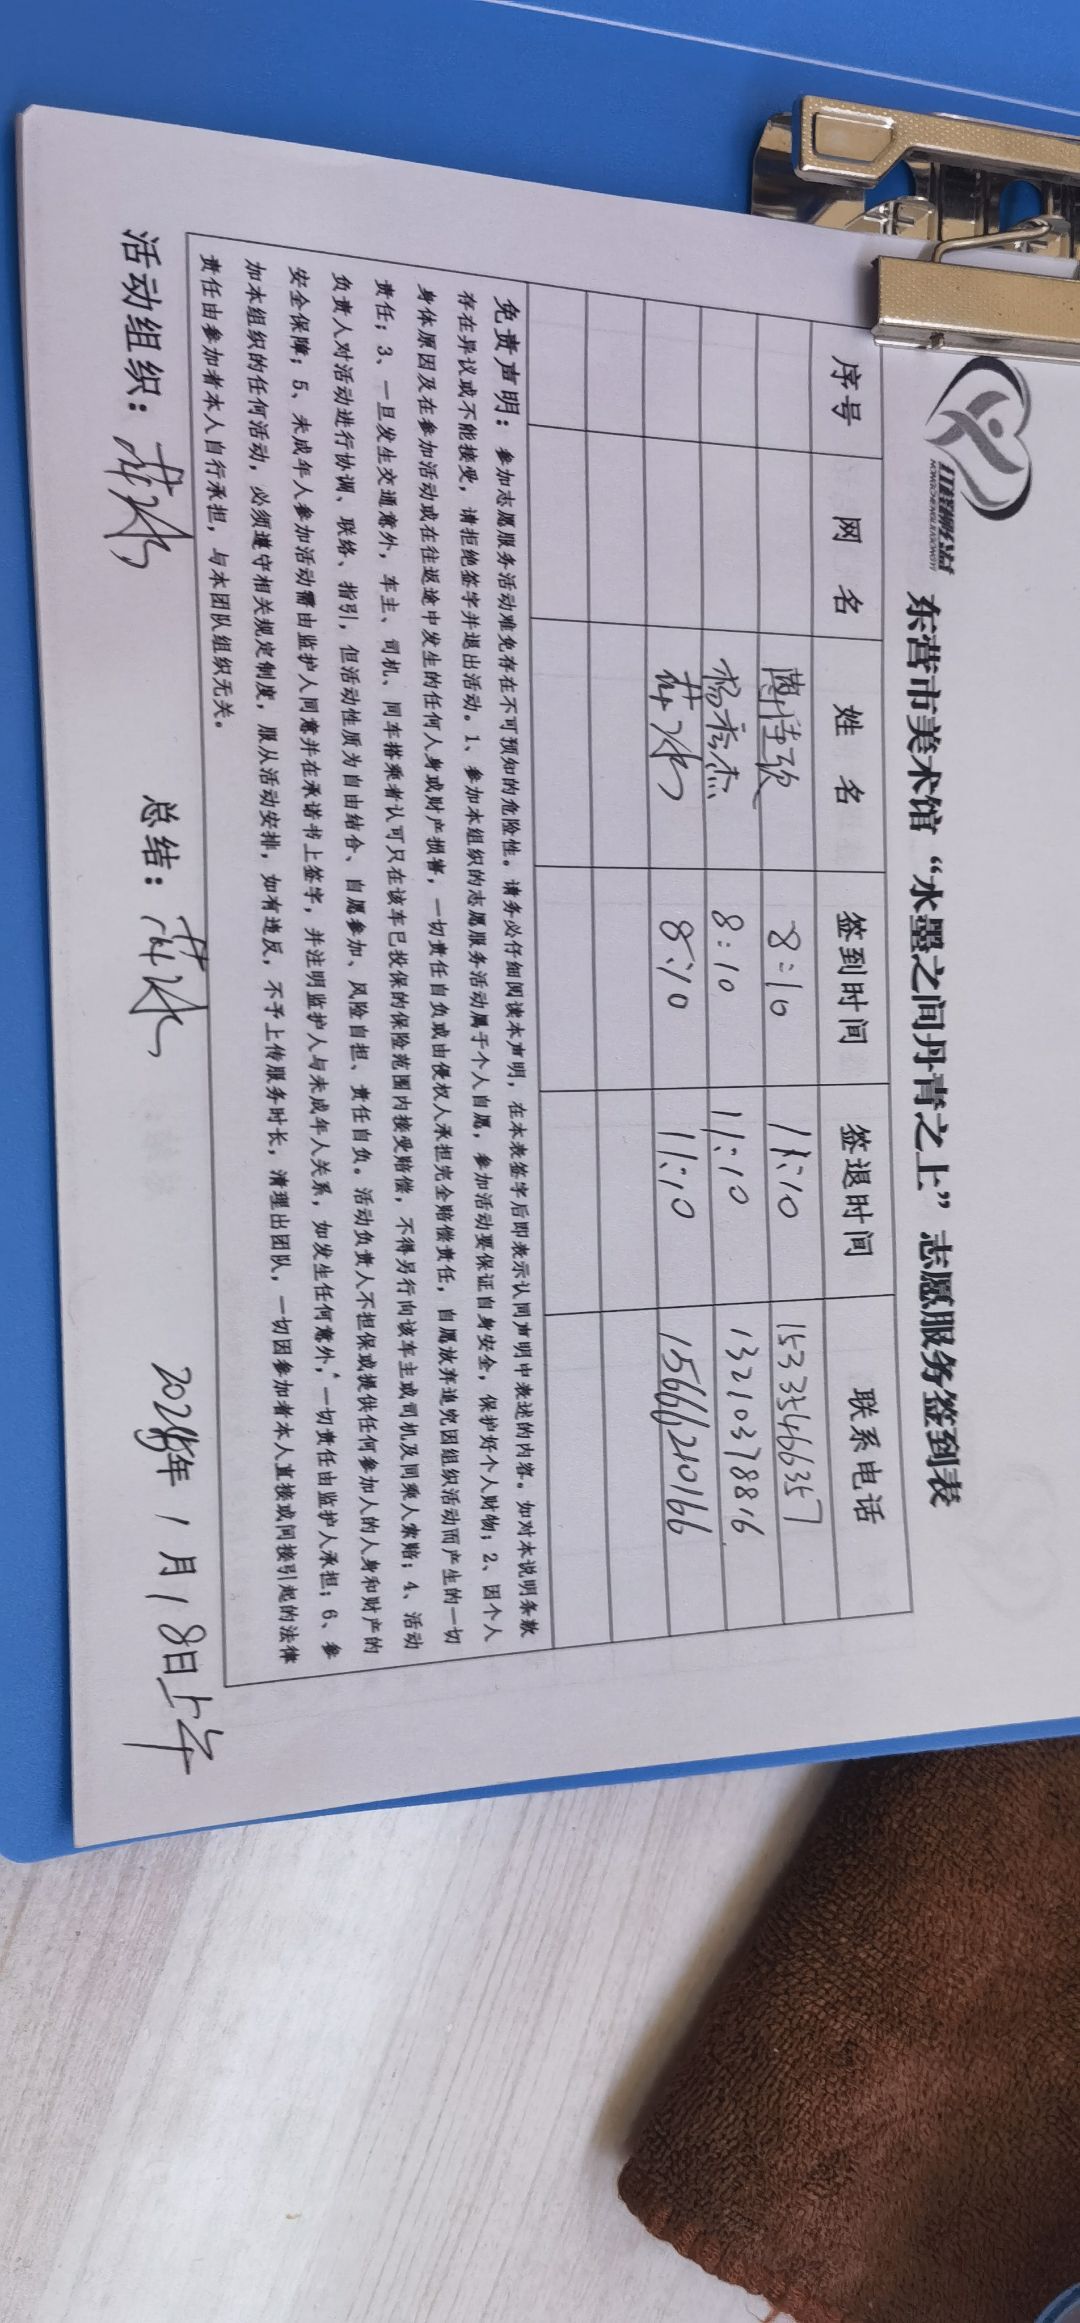 东营市美术馆“水墨之间丹青之上”志愿服务签到表
序号 网 名 姓 名 签到时间 签退时间 联系电话
8:10 11:10 15335466357
杨秀杰 8:10 11:10 13210378816
8:10 11:10 15666210166
免责声明：参加志愿服务活动难免存在不可预知的危险性。请务必仔细阅读本声明，在本表签字后即表示认同声明中表述的内容。如对本说明条款
存在异议或不能接受，请拒绝签字并退出活动。1、参加本组织的志愿服务活动属于个人自愿，参加活动要保证自身安全，保护好个人财物；2、因个人
身体原因及在参加活动或在往返途中发生的任何人身或财产损害，一切责任自负或由侵权人承担完全赔偿责任，自愿放弃追究因组织活动而产生的一切
责任；3、一旦发生交通意外，车主、司机、同车搭乘者认可只在该车已投保的保险范围内接受赔偿，不得另行向该车主或司机及同乘人索赔；4、活动
负责人对活动进行协调、联络、指引，但活动性质为自由结合、自愿参加、风险自担、责任自负。活动负责人不担保或提供任何参加人的人身和财产的
安全保障；5、未成年人参加活动需由监护人同意并在承诺书上签字，并注明监护人与未成年人关系，如发生任何意外，一切责任由监护人承担；6、参
加本组织的任何活动，必须遵守相关规定制度，服从活动安排，如有违反，不予上传服务时长，清理出团队，一切因参加者本人直接或间接引起的法律
责任由参加者本人自行承担，与本团队组织无关。
活动组织： 总结： 年 1 月 18 日上午